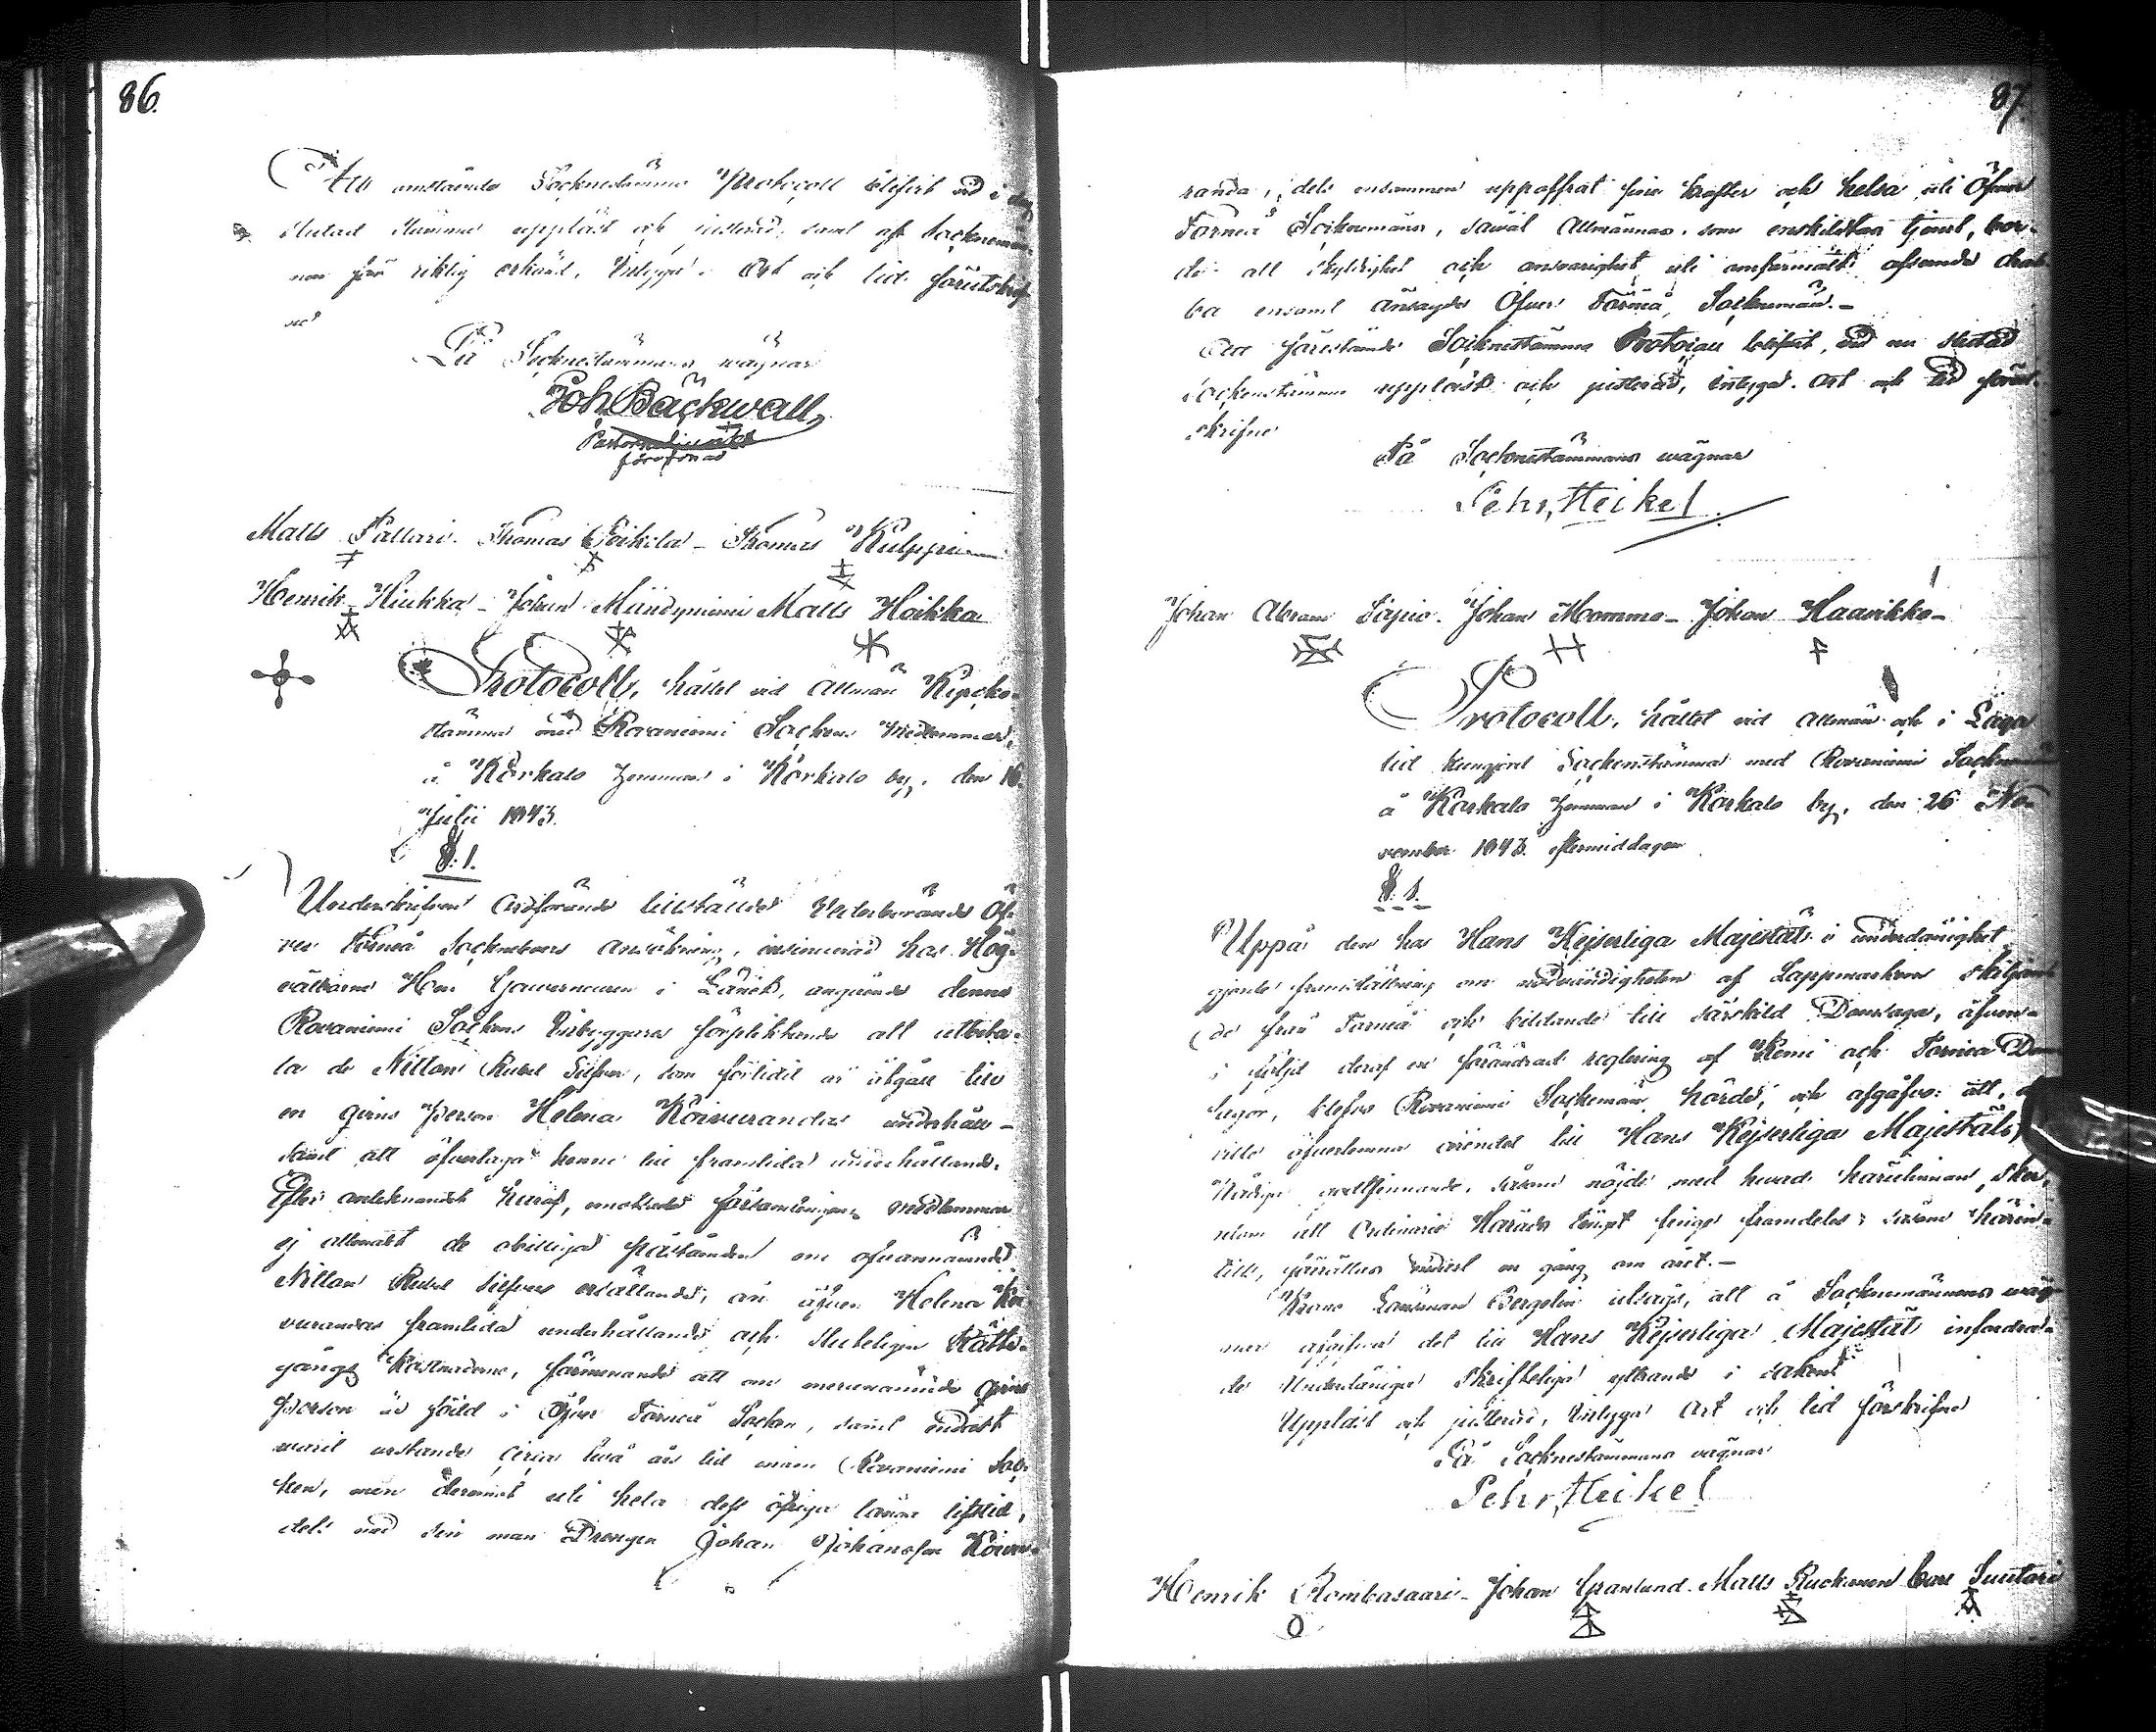 86.
Att omstående Sockenstämmo Protocoll blifvit vid i dag
slutad stämma uppläst och justerad, samt af Socknemän-
nen för riktig erkänd, intygas. Ort och tid förutskrif-
ne
På Socknestämmans wägnar
Joh Bäckwall
Matts Pallari. Thomas Poikela - Thomas Kulppi
Henrik Hiukka - Johan Mändyniemi Matts Hoikka
Protocoll, hållet vid Allmän Kyrcko-
stämma med Rovaniemi Sockens Medlemmar,
å Korkalo hemman i Korkalo by, den 16.
Julii 1843.
§. 1.
Underskrifven Ordförande tillställde Vederbörande Öf-
ver Torneå Socknebors ansökning, insinuerad hos Hög-
välborne Herr Gouverneuren i Länet, angående denne
Rovaniemi Sockens Inbyggares förpliktande att utbeta-
la de Nitton Rubel Silfver, som förlidit år utgått till
en qvins person Helena Koivurandas underhåll -
samt att öfvertaga henne till framtida underhållande.
Efter anledning häraf, emottogo församlingens medlemmar
ej allenast de obilliga påståenden om ofvannämnde
Nitton Rubel Silfvers erhållande, än äfven Helena Koi-
vurandas framtida underhållande och slutligen Rätte-
gångs Kostnaderne, förmenande att om merenämnde qvins
Person är född i Öfver Torneå Socken, samt endast
warit vistande circa två års tid inom Rovaniemi Soc-
ken, men deremot uti hela dess öfriga lifstid,
dels med sin man Drengen Johan Johansson Koivu-
87.
randa, dels ensammen uppoffrat sina krafter och helsa uti Öfver
Torneå Socknemäns, såväl Allmännas som enskildtas tjenst, bor-
de all skyldighet och ansvarighet uti omförmält afseende drab-
ba ensamt ansagde Öfver Torneå Sockenmän. -
Att förestående Socknestämmo Protocoll blifvit, vid nu slutad
Sockenstämma uppläst och justerad, intygas. Ort och tid förut-
skrifne
På Socknestämmans wägnar
Pehr Heikel
Johan Abram Sapio. Johan Mommo - Johan Haavikko -
Protocoll, hållet vid allmän och i Laga
tid kungjord Sockenstämma med Rovaniemi Socknemän
å Korkalo hemman i Korkalo by, den 26 No-
vember 1843 eftermiddagen
§. 1.
Uppå den hos Hans Kejserliga Majestät i underdånighet
gjorde framställning om nödvändigheten af Lappmarkens skiljan-
de från Torneå och bildande till särskild Domsaga, äfven-
i följd deraf en förändrad reglering af Kemi och Torneå Dom
sagor, blefvo Rovaniemi Sockenmän hörde, och afgåfvo: att, de
ville öfverlemna ärendet till Hans Kejserliga Majestäts,
Nådiga godtfinnande, såsom nöjde med hvad härutinnan sker,
utom att Ordinarie Härads Tinget finge framdeles, såsom härin-
tills, förrättas endast en gång om året. -
Krono Länsman Bergelin utsågs, att å Socknemännens wäg-
nar afgifva det till Hans Kejserliga Majestät infordra-
de Underdåniga skriftliga yttrande i saken
Uppläst och justerad, intygas Ort och tid förskrifne
På Socknestämmans vägnar
Pehr Heikel
Henrik Rombasaari - Johan Granlund. Matts Ruokanen Carl Suutari